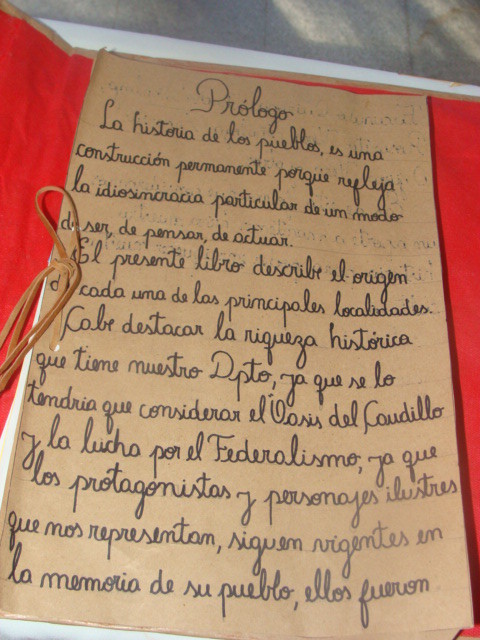 Prólogo
La historia de los pueblos, es una
construcción permanente porque refleja
la idiosincracia particular de un modo
de ser, de pensar, de actuar.
El presente libro describe el origen
de cada una de las principales localidades.
Cabe destacar la riqueza histórica
que tiene nuestro Dpto, ya que se lo
tendria que considerar el Oasis del Caudillo
y la lucha por el Federalismo, ya que
los protagonistas y personajes ilustres
que nos representan, siguen vigentes en
la memoria de su pueblo, ellos fueron